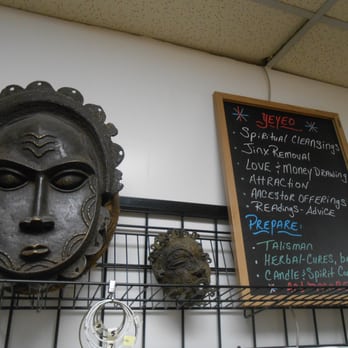 YEYEO
• SPIRITUAL CLEANSINGS
• JINX REMOVAL
• LOVE & MONEY DRAWING
• ATTRACTION
• ANCESTOR OFFERINGS
• READINGS - ADVICE
PREPARE:
• TALISMAN
• HERBAL-CURES,
• CANDLE & SPIRIT